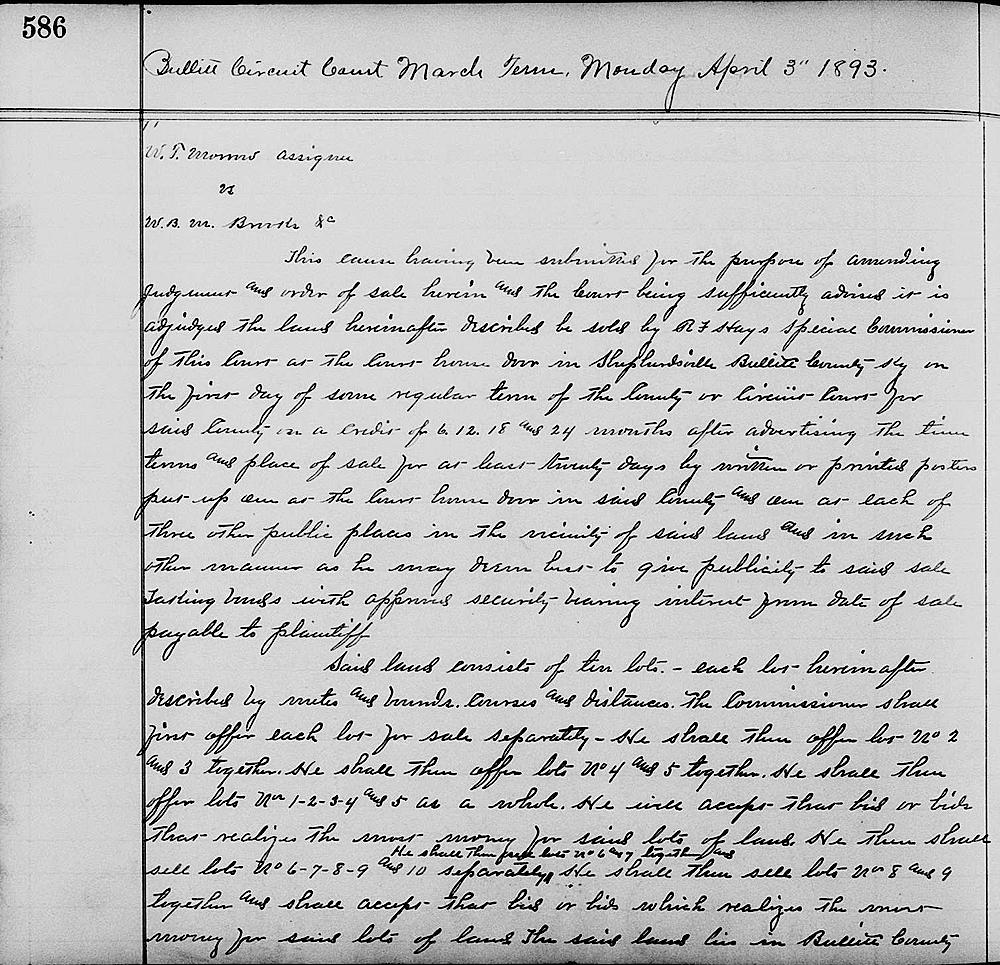 586
Bullitt Circuit Court March Term, Monday April 3" 1893.
W. T. Morrow assignee
vs
W. B. M. Brooks &c
This cause having been submitted for the purpose of amending
Judgement and order of sale herein and the Court being sufficiently advised it is
adjudged the land hereinafter described be sold by R F Hays Special Commissioner
of this Court at the Court house door in Shepherdsville Bullitt County Ky on
the first day of some regular term of the County or Circuit Court for
said County on a credit of 6. 12. 18 and 24 months after advertising the time
terms and place of sale for at least twenty days by written or printed posters
put up one at the Court house door in said County and one at each of
three other public places in the vicinity of said land and in such
other manner as he may deem best to give publicity to said sale
Taking bonds with approved security bearing interest from date of sale
payable to plaintiff
Said land consists of ten lots. - each lot hereinafter
described by metes and bounds. Courses and distances. The Commissioner shall
first offer each lot for sale separately - He shall then offer lot No 2
and 3 together. He shall then offer lots No 4 and 5 together. He shall then
offer lots Nos 1-2-3-4 and 5 as a whole. He will accept that bid or bids
that realizes the most money for said lots of land. He then shall
He shall then sell lots No 6 & 7 together and
sell lots No 6-7-8-9 and 10 separately, He shall then sell lots Nos 8 and 9
together and shall accept that bid or bids which realizes the most
money for said lots of land The said land lies in Bullitt County